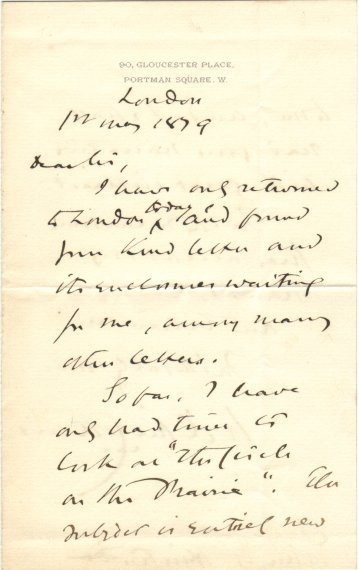 90, GLOUCESTER PLACE,
PORTMAN SQUARE. W.
London
1st May 1879
Dear Sir,
I have only returned
to London today and found
your kind letter and
its enclosures waiting
for me, among many
other letters.
So far, I have
only had time to
look at "The Circle
on the Prairie". The
subject is entirely new